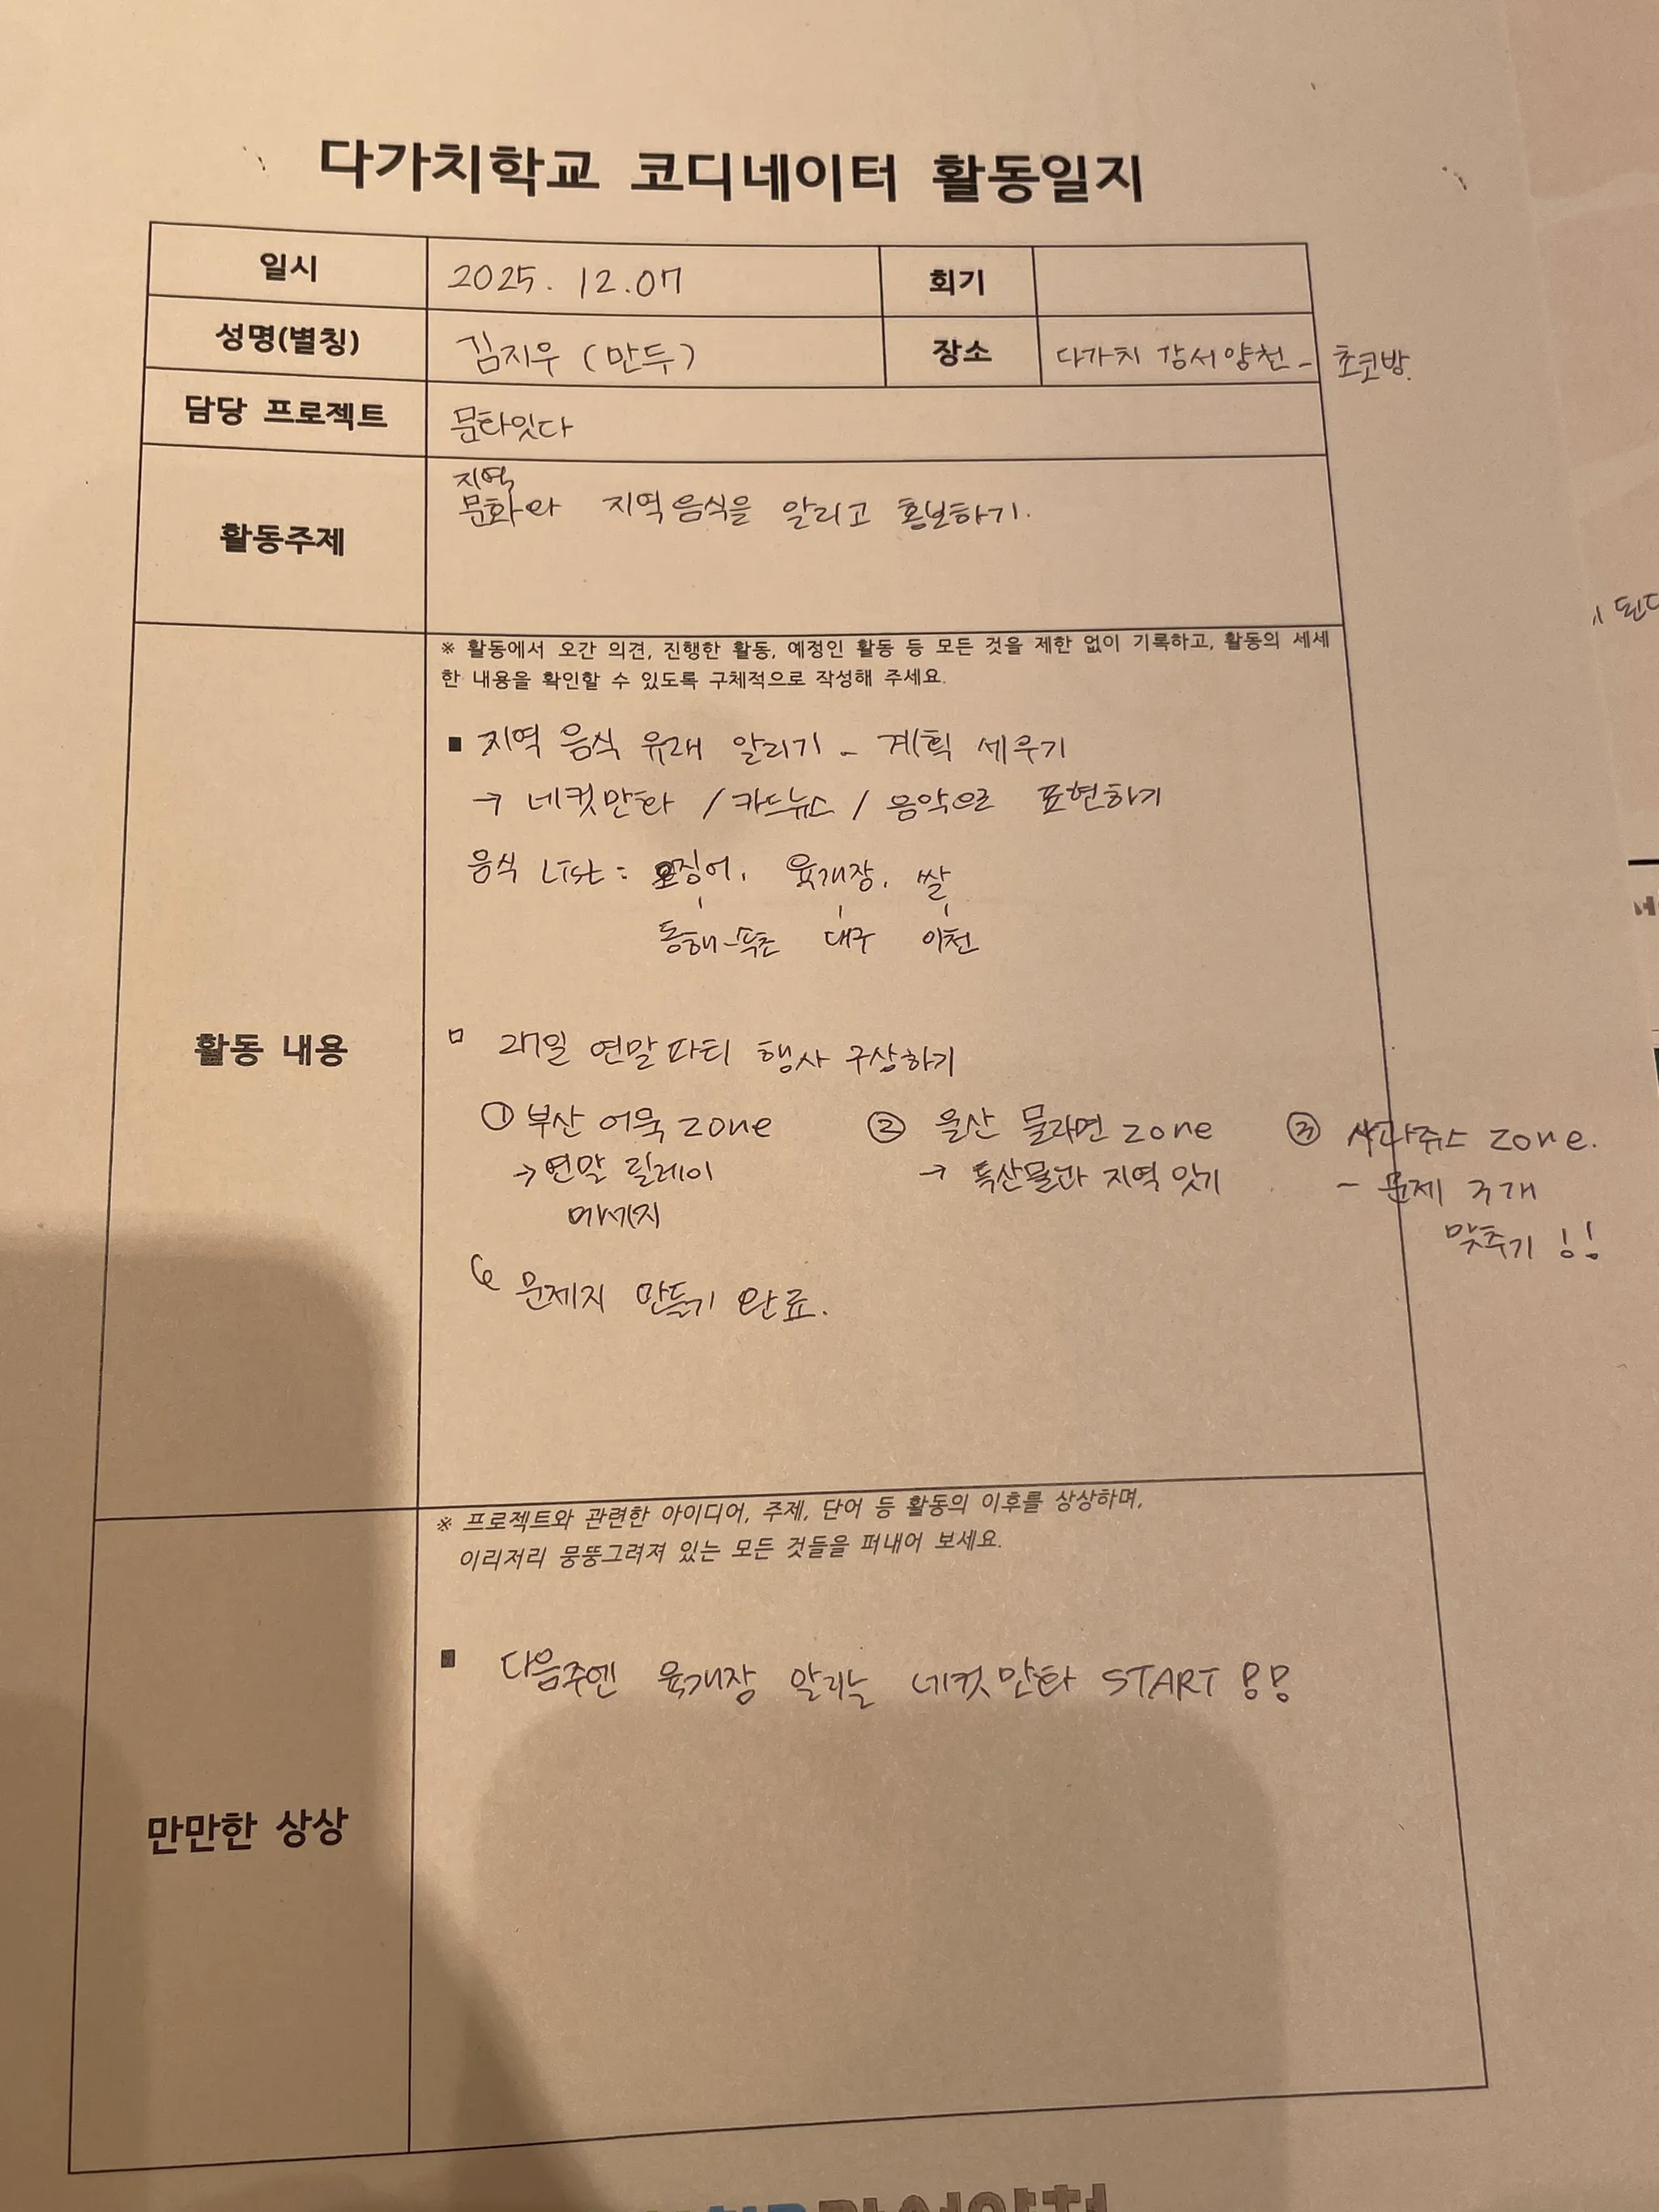 다가치학교 코디네이터 활동일지
일시 2025. 12.07 회기
성명(별칭) 김지우 (만두) 장소 다가치 강서양천 - 초코방.
담당 프로젝트 문화잇다
지역
활동주제 문화와 지역음식을 알리고 홍보하기.
※ 활동에서 오간 의견, 진행한 활동, 예정인 활동 등 모든 것을 제한 없이 기록하고, 활동의 세세
한 내용을 확인할 수 있도록 구체적으로 작성해 주세요.
■ 지역 음식 유래 알리기 - 계획 세우기
→ 네컷만화 / 카드뉴스 / 음악으로 표현하기
음식 List : 오징어, 육개장, 쌀
동해-속초 대구 이천
활동 내용
□ 27일 연말파티 행사 구상하기
① 부산 어묵 zone ② 울산 물라면 zone ③ 사과쥬스 zone.
→ 연말 릴레이 → 특산물과 지역 잇기 - 문제 3개
메세지 맞추기 !!
문제지 만들기 완료.
※ 프로젝트와 관련한 아이디어, 주제, 단어 등 활동의 이후를 상상하며,
이리저리 뭉뚱그려져 있는 모든 것들을 퍼내어 보세요.
■ 다음주엔 육개장 알리는 네컷만화 START !!
만만한 상상